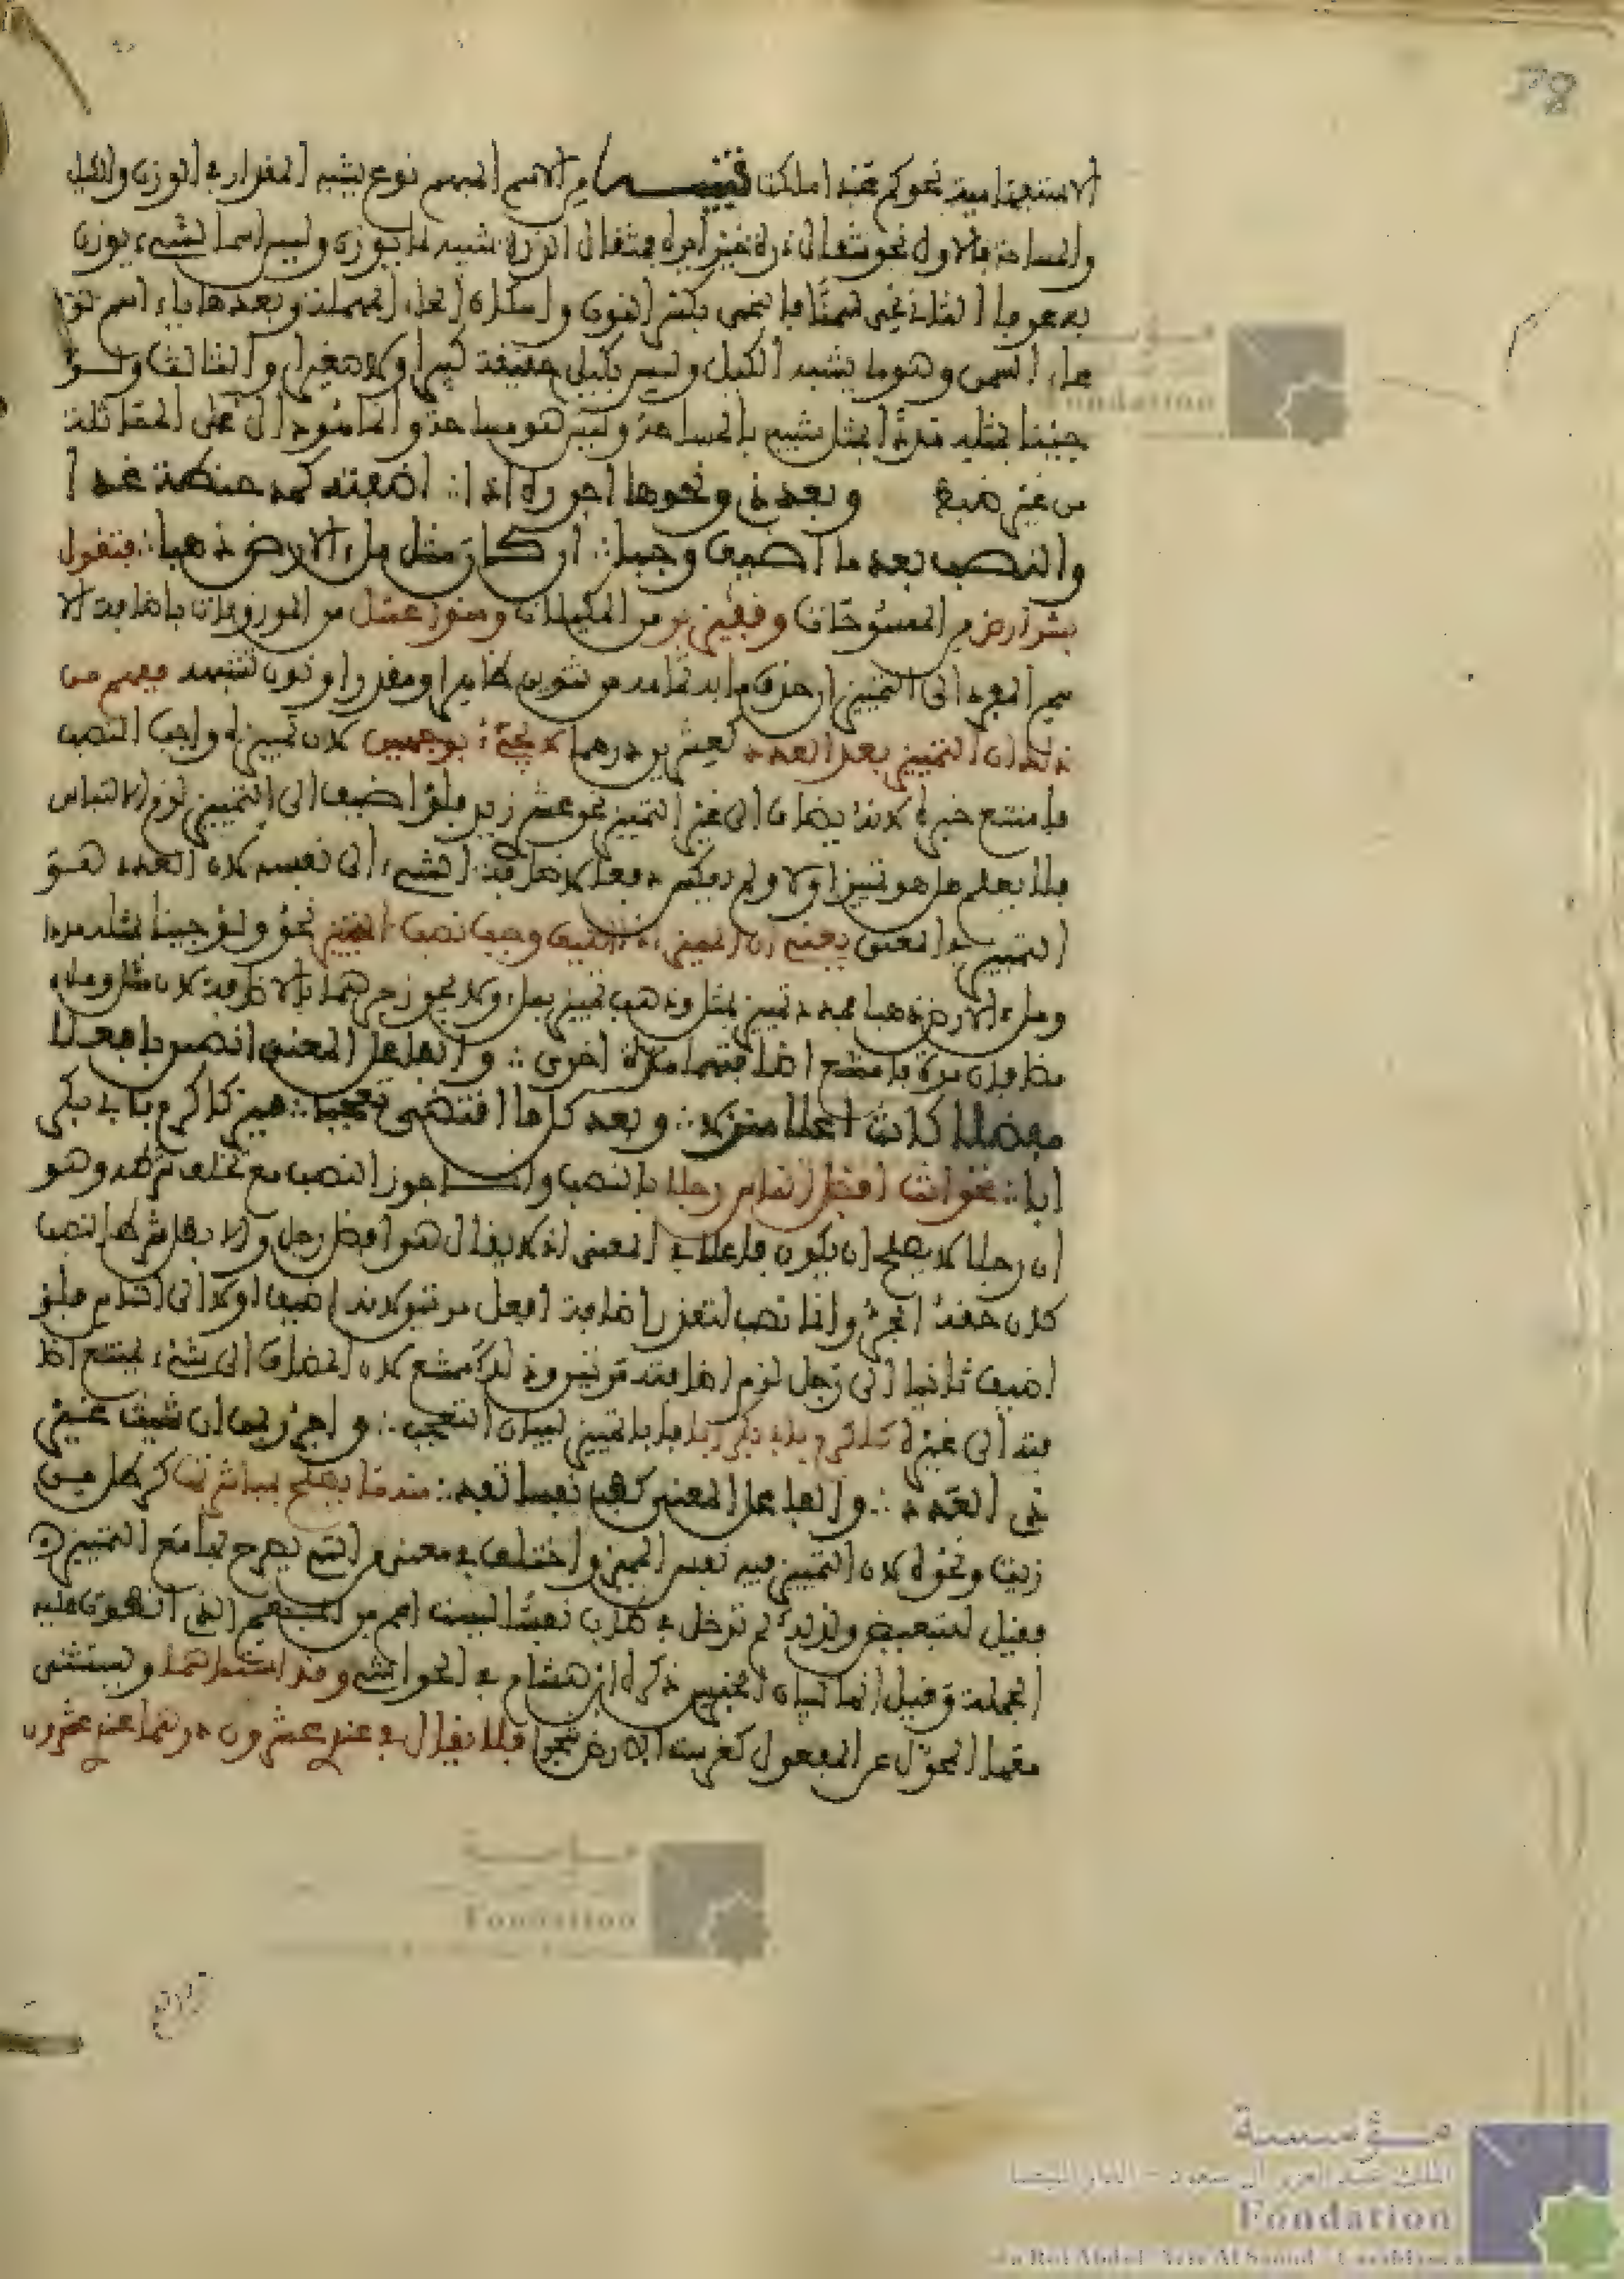 الاستفهامية نحو كم عبدا ملكت تنبيه من الاسم المبهم نوع يشبه المقدار في الوزن والكيل
والمساحة فالاول نحو مثقال ذرة خيرا يره فمثقال الذرة شبيه لما يوزن وليس اسما لشيء يوزن
به عرفا الثاني نحي سمنا فالنحي بكسر النون واسكان الحاء المهملة وبعدها ياء اسم
السمن وهو ما يشبه الكيل وليس بكيل حقيقة كبيرا ولا صغيرا والثالث ولو
جئنا بمثله مددا فمثل شبيه بالمساحة وليس هو مساحة وانما هو دال على المماثلة
من غير ضبط وبعد ذي ونحوها اجرره اذا ∴ اضفتها كمد حنطة غذا
والنصب بعد ما اضيف وجبا ∴ ان كان مثل ملء الارض ذهبا ∴ فتقول
شبر ارض من الممسوحات وقفيز بر من المكيلات ومنوا عسل من الموزونات باضافة الا
سم المفرد الى التمييز وحذف ما به تمامه من تنوين ظاهرا او مقدرا او نون تشبهه ففهم من
ذلك ان التمييز بعد العدد كعشرين درهما لا يجيء بوجهين لان تمييزه واجب النصب
فامتنع جره لانه يضاف الى غير التمييز نحو عشري زيد فلو اضيف الى التمييز لزم الالتباس
فلا يعلم هل هو تمييز او لا ولم يعكس دفعا لاضافة الشيء الى نفسه لان العدد هو
التمييز في المعنى يعني ان المميز اذا اضيف وجب نصب التمييز نحو ولو جئنا بمثله مددا
وملء الارض ذهبا فمددا تمييز لمثل وذهب تمييز لملء ولا يجوز جرهما بالاضافة لان مثل وملء
مضافان مرة فامتنع اضافتهما مرة اخرى ∴ والفاعل المعنى انصبن بافعلا
مفضلا كانت اعلا منزلا ∴ وبعد كل ما اقتضى تعجبا ∴ ميز كاكرم بابي بكر
ابا ∴ نحو انت افضل الناس رجلا بالنصب وانما جوز النصب مع تخلف شرطه وهو
ان رجلا لا يصلح ان يكون فاعلا في المعنى اذ لا يقال هو افضل رجل والا بطل شرط النصب
لان حقه الجر وانما نصب لتعذر اضافة افعل مرتين لانه اضيف اولا الى الناس فلو
اضيف ثانيا الى رجل لزم اضافته مرتين وذلك ممتنع لان المضاف الى شيء يمتنع اضا
فته الى غيره كاكرم بابي بكر ابا فابا تمييز لبيان التعجب ∴ واجرر بمن ان شئت غير
ذي العدد ∴ والفاعل المعنى كطب نفسا تفد ∴ مما يصلح لمباشرتها كرطل من
زيت ونحوه لان التمييز فيه نفس المميز واختلف في معنى من التي يصرح بها مع التمييز
فقيل للتبعيض ولذلك لم تدخل في طاب نفسا ليست اعم من المبهم الذي انطوت عليه
الجملة وقيل انها لبيان الجنس ذكره ابن هشام في الحواشي وقد استثناهما ويستثنى
معهما المحول عن المفعول كغرست الارض شجرا فلا يقال في عندي عشرون درهما عندي عشرون
مؤسسة
الملك عبد العزيز آل سعود - الدار البيضاء
Fondation
du Roi Abdul-Aziz Al Saoud - Casablanca